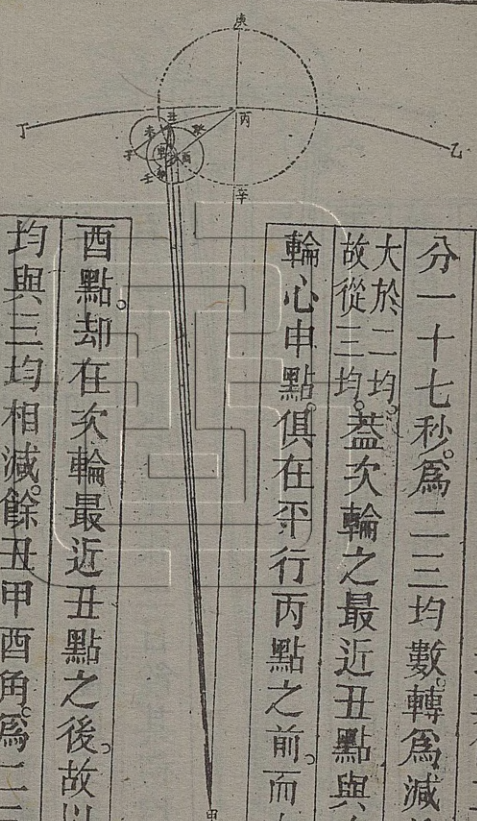 庚
丙
丁
乙
丑
癸
子
壬
辛
甲
分一十七秒。為二三均數。轉為減
大於二均。
故從三均。
蓋次輪之最近丑點與
輪心申點。俱在平行丙點之前。而
酉點。却在次輪最近丑點之後。故以
均與三均相減。餘丑甲酉角。為二三